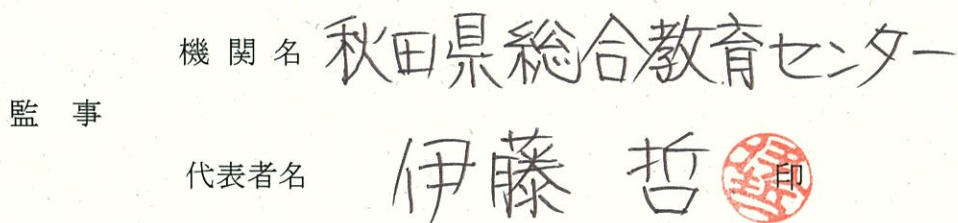 機関名 秋田県総合教育センター
監事
代表者名 伊藤 哲 印